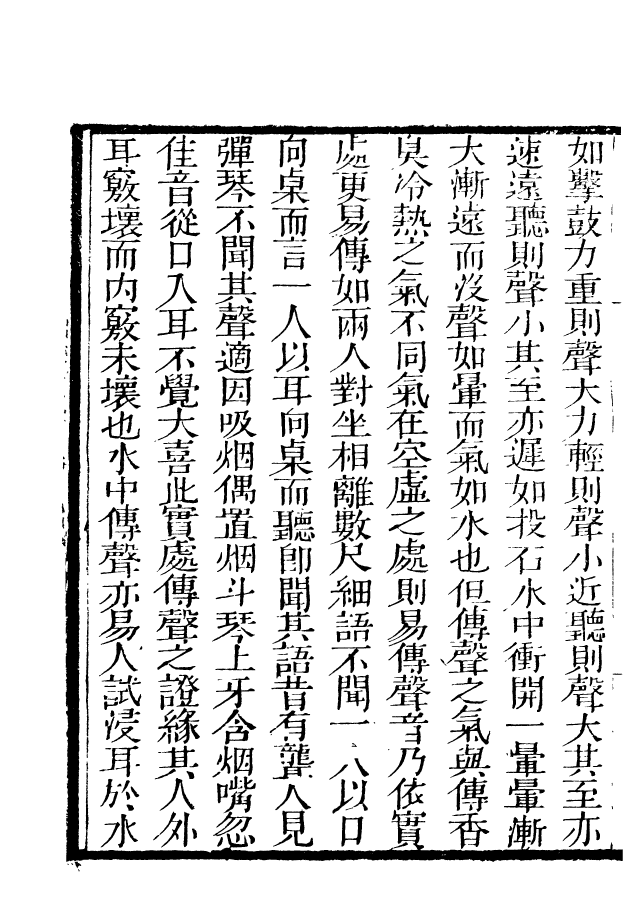 如擊鼓力重則聲大力輕則聲小近聽則聲大其至亦
速遠聽則聲小其至亦遲如投石水中衝開一暈暈漸
大漸遠而沒聲如暈而氣如水也但傳聲之氣與傳香
臭冷熱之氣不同氣在空虛之處則易傳聲音乃依實
處更易傳如兩人對坐相離數尺細語不聞一人以口
向桌而言一人以耳向桌而聽卽聞其語昔有聾人見
彈琴不聞其聲適因吸烟偶置烟斗琴上牙含烟嘴忽
佳音從口入耳不覺大喜此實處傳聲之證緣其人外
耳竅壞而內竅未壞也水中傳聲亦易人試浸耳於水